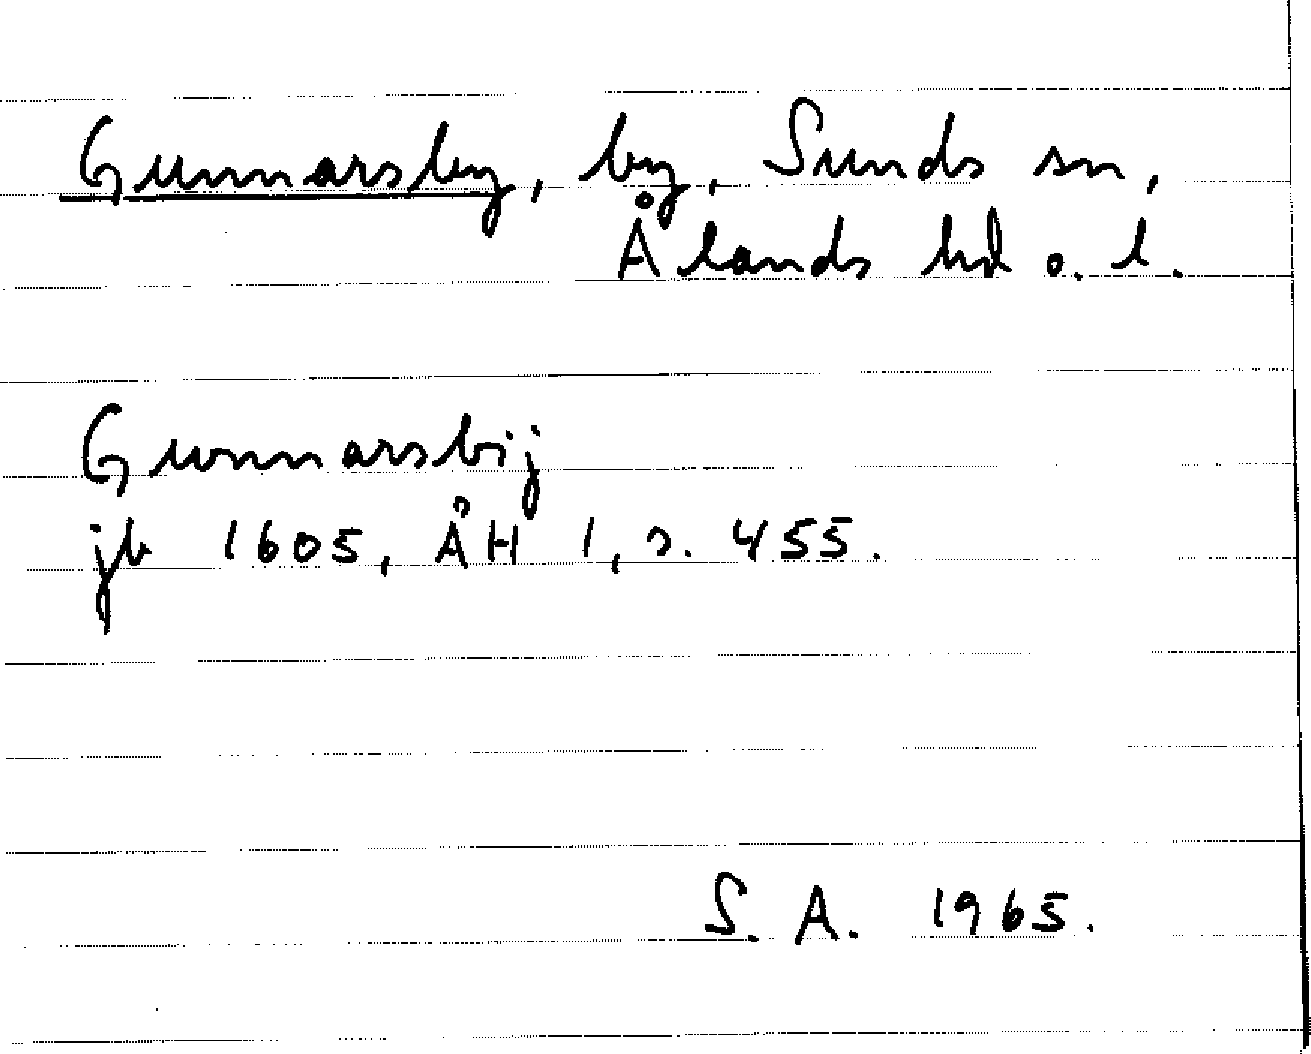 Gunnarsby, by, Sunds sn,
Ålands hd o. l.
Gunnarsbij
jb 1605, ÅH 1, s. 455.
S. A. 1965.